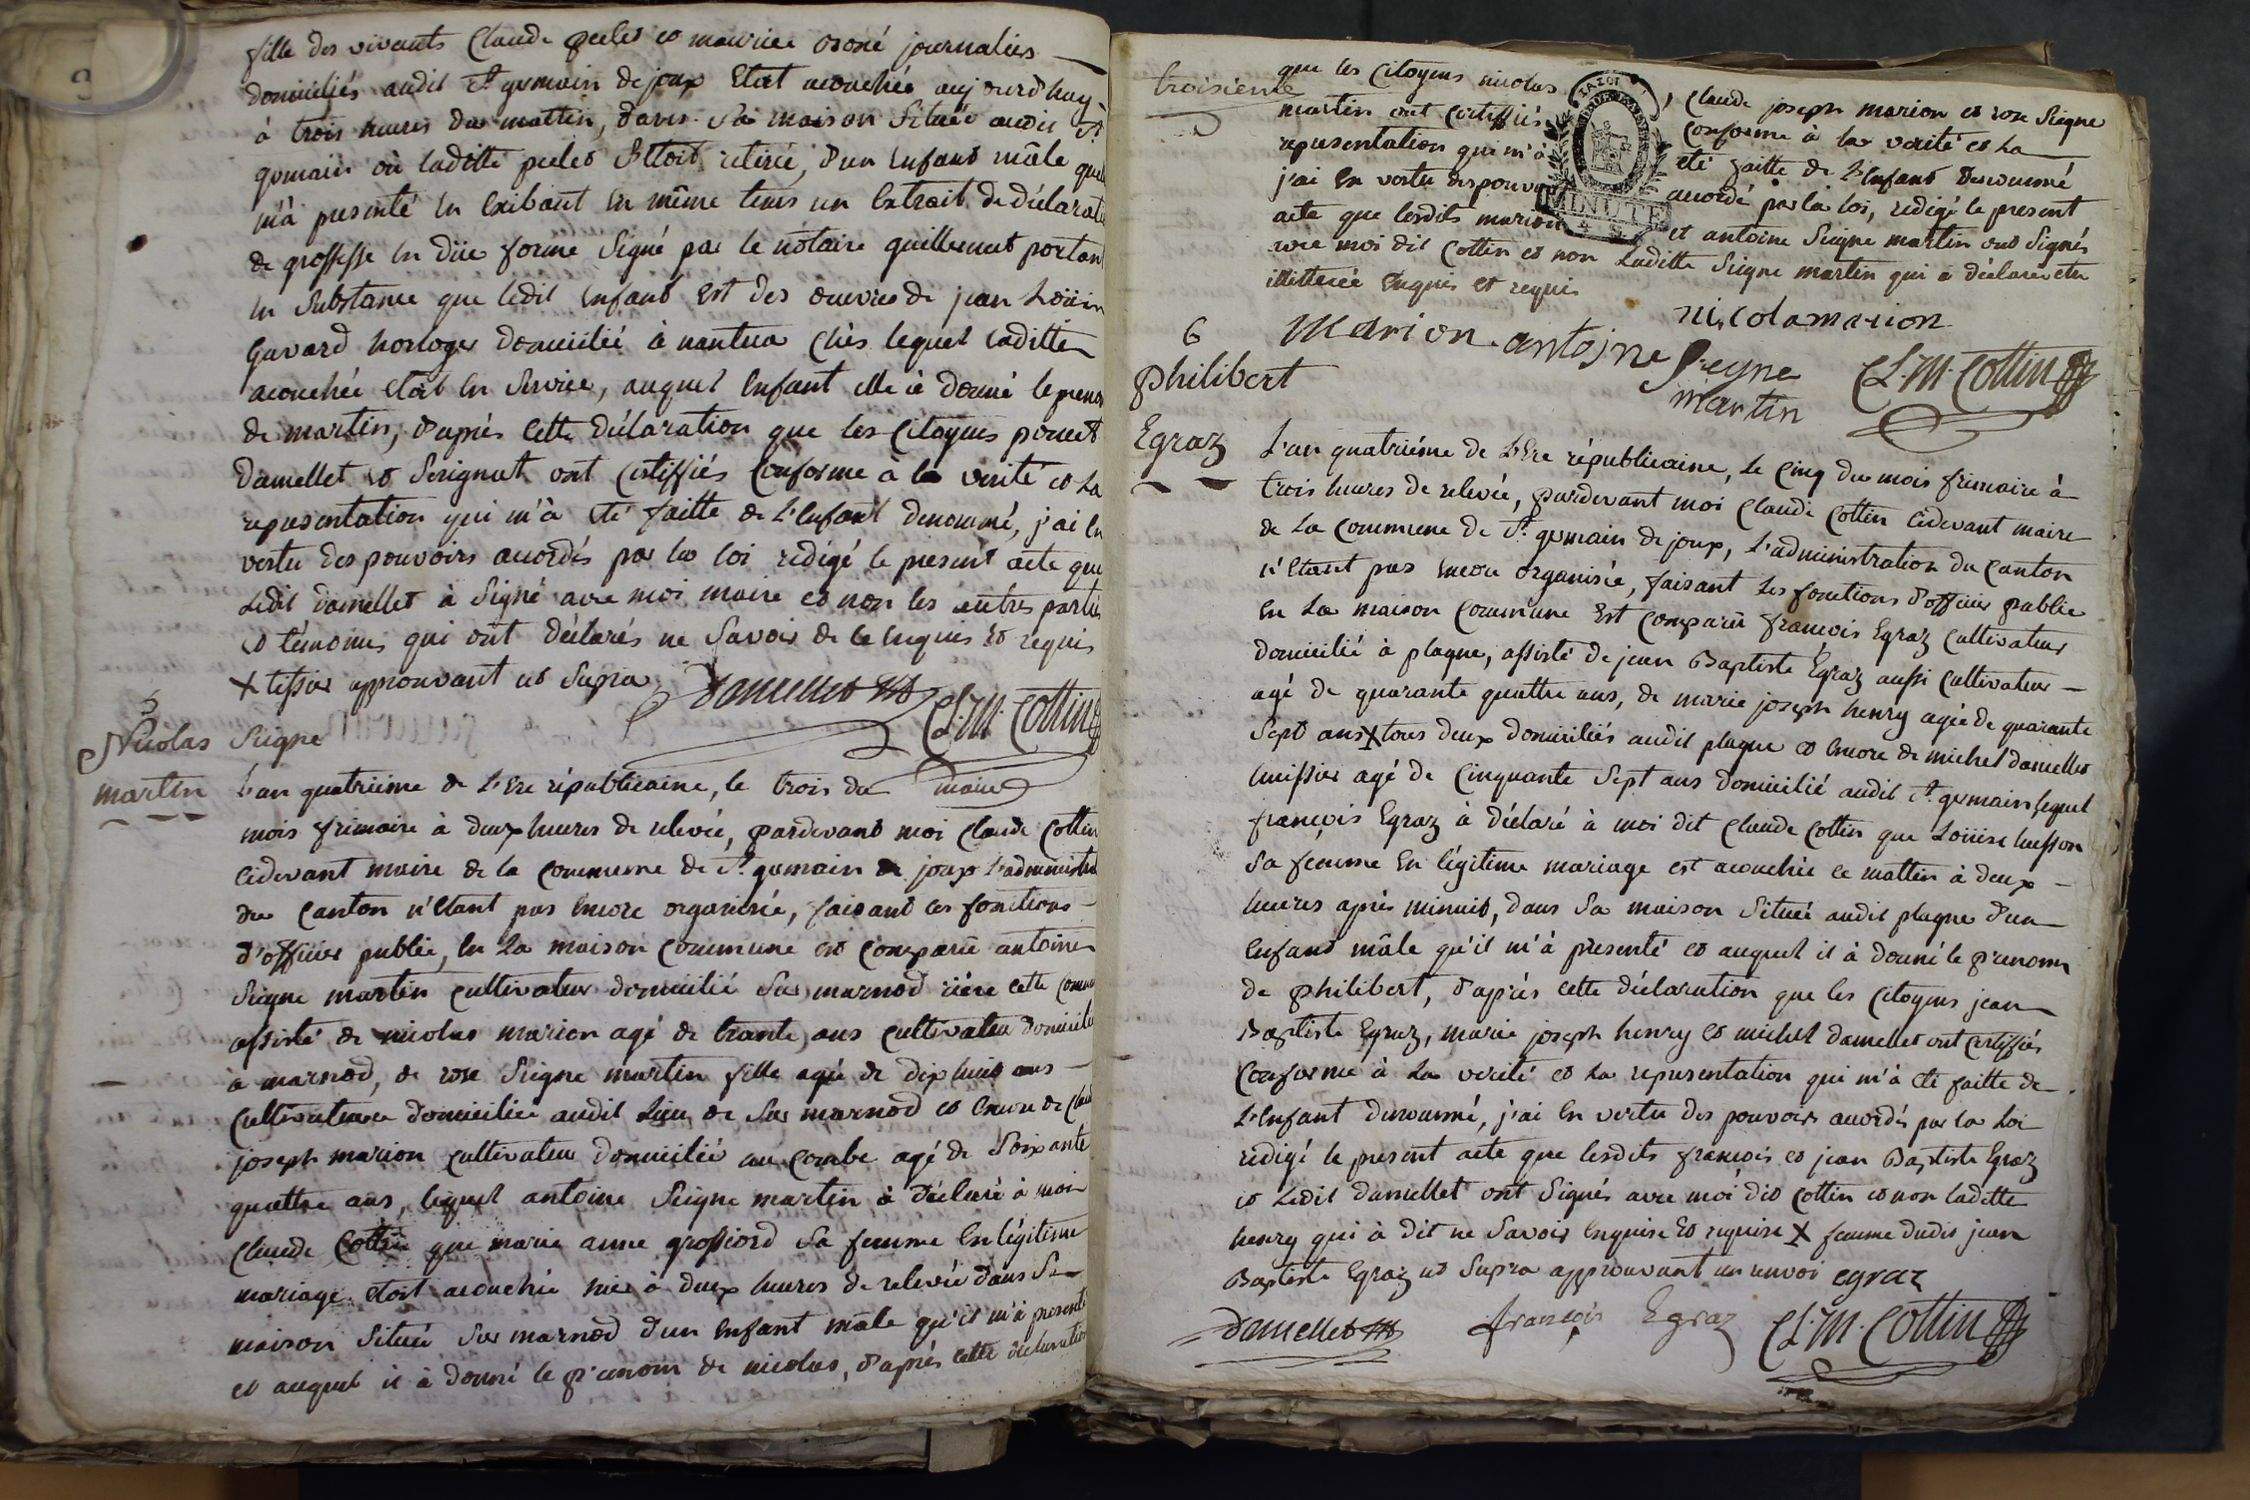 fille des vivants Claude peelet et mauricee journaliers
domiciliés audit St germain de joux Etat acouchée aujourd'huy
à trois heures du mattin, dans sa maison Située audit St
germain où laditte peelet S'Etoit retirée, d'un Enfant mâle quelle
m'à presenté En Exibant En même tems un Extrait de déclaration
de grossesse En düe forme Signé par le notaire guillermet portant
En Substance que ledit Enfant Est des œuvres de jean Loüis
Gavard horloger domicilié à nantua chés lequel laditte
acouchée etoit En Service, auquel Enfant elle à donné le prenom
de martin; d'après Cette déclaration que les Citoyens
Damellet et ont Certiffiés Conforme à la verité et la
representation qui m'à été faitte de L'Enfant denommé, j'ai En
vertu des pouvoirs accordés par la loi redigé le present acte que
Ledit damellet à Signé avec moi maire et non les autres parties
et témoins qui ont déclarés ne Savoir de ce Enquis et requis
X approuvant ut Supra Damellet Cl. M. Cottin
5
Nicolas Seigne
martin L'an quatrième de L'Ere républicaine, le trois du maire
mois frimaire à deux heures de relevée, pardevant moi Claude Cottin
Cidevant maire de la Commune de St germain de joux L'administra
du Canton n'étant pas Encore organisée, faisant les fonctions
d'officier public, En La maison Commune est Comparu antoine
Seigne martin Cultivateur domicilié Sur marnod rière cette Commune
assisté de nicolas marion agé de trante ans Cultivateur domicilié
à marnod, de rose Seigne martin fille agée de dix huit ans
Cultivatrice domiciliée audit Lieu de Sur marnod et Encore de Claude
joseph marion Cultivateur domicilié au Combe agé de Soixante
quattre ans, lequel antoine Seigne martin à déclaré à moi
Claude Cottin que marie anne grossiord Sa femme En légitime
mariage etoit acouchée hier à deux heures de relevée dans Sa
maison Située Sur marnod d'un Enfant mâle qu'il m'à presenté
et auquel il à donné le prenom de nicolas, d'après cette déclaration
troisieme
que les Citoyens nicolas, Claude joseph marion et rose Seigne
martin ont Certiffiés Conforme à la verité et La
representation qui m'à été faitte de L'Enfant denommé
j'ai En vertu des pouvoirs accordé par la loi, redigé le present
acte que lesdits marion et antoine Seigne martin ont Signés
avec moi dit Cottin et non Laditte Seigne martin qui à déclaré etre
illitterée Enquis et requis
MINUTE
nicola marion
marion antoine Seigne
martin
Cl. M. Cottin
6
Philibert
Egraz
L'an quatriéme de L'Ere républicaine, le Cinq du mois frimaire à
trois heures de relevée, pardevant moi Claude Cottin Cidevant maire
de La Commune de St germain de joux, L'administration du Canton
n'étant pas Encore organisée, faisant Les fonctions d'officier public
En La maison Commune Est Comparu françois Egraz Cultivateur
domicilié à plagne, assisté de jean Baptiste Egraz aussi Cultivateur
agé de quarante quattre ans, de marie joseph henry agée de quarante
Sept ans X tous deux domiciliés audit plagne et Encore de michel damellet
huissier agé de Cinquante Sept ans domicilié audit St germain lequel
françois Egraz à déclaré à moi dit Claude Cottin que Loüise husson
Sa femme En légitime mariage est acouchée ce mattin à deux
heures après minuit, dans Sa maison Située audit plagne d'un
Enfant mâle qu'il m'à presenté et auquel il à donné le prenom
de Philibert, d'après cette déclaration que les Citoyens jean
Baptiste Egraz, marie joseph henry et michel damellet ont Certiffiés
Conforme à La verité et La representation qui m'à été faitte de
L'Enfant denommé, j'ai En vertu des pouvoirs accordés par la Loi
redigé le present acte que lesdits françois et jean Baptiste Egraz
et Ledit damellet ont Signés avec moi dit Cottin et non laditte
henry qui à dit ne Savoir Enquise et requise X femme dudit jean
Baptiste Egraz ut Supra approuvant un renvoi egraz
Damellet françois Egraz Cl. M. Cottin